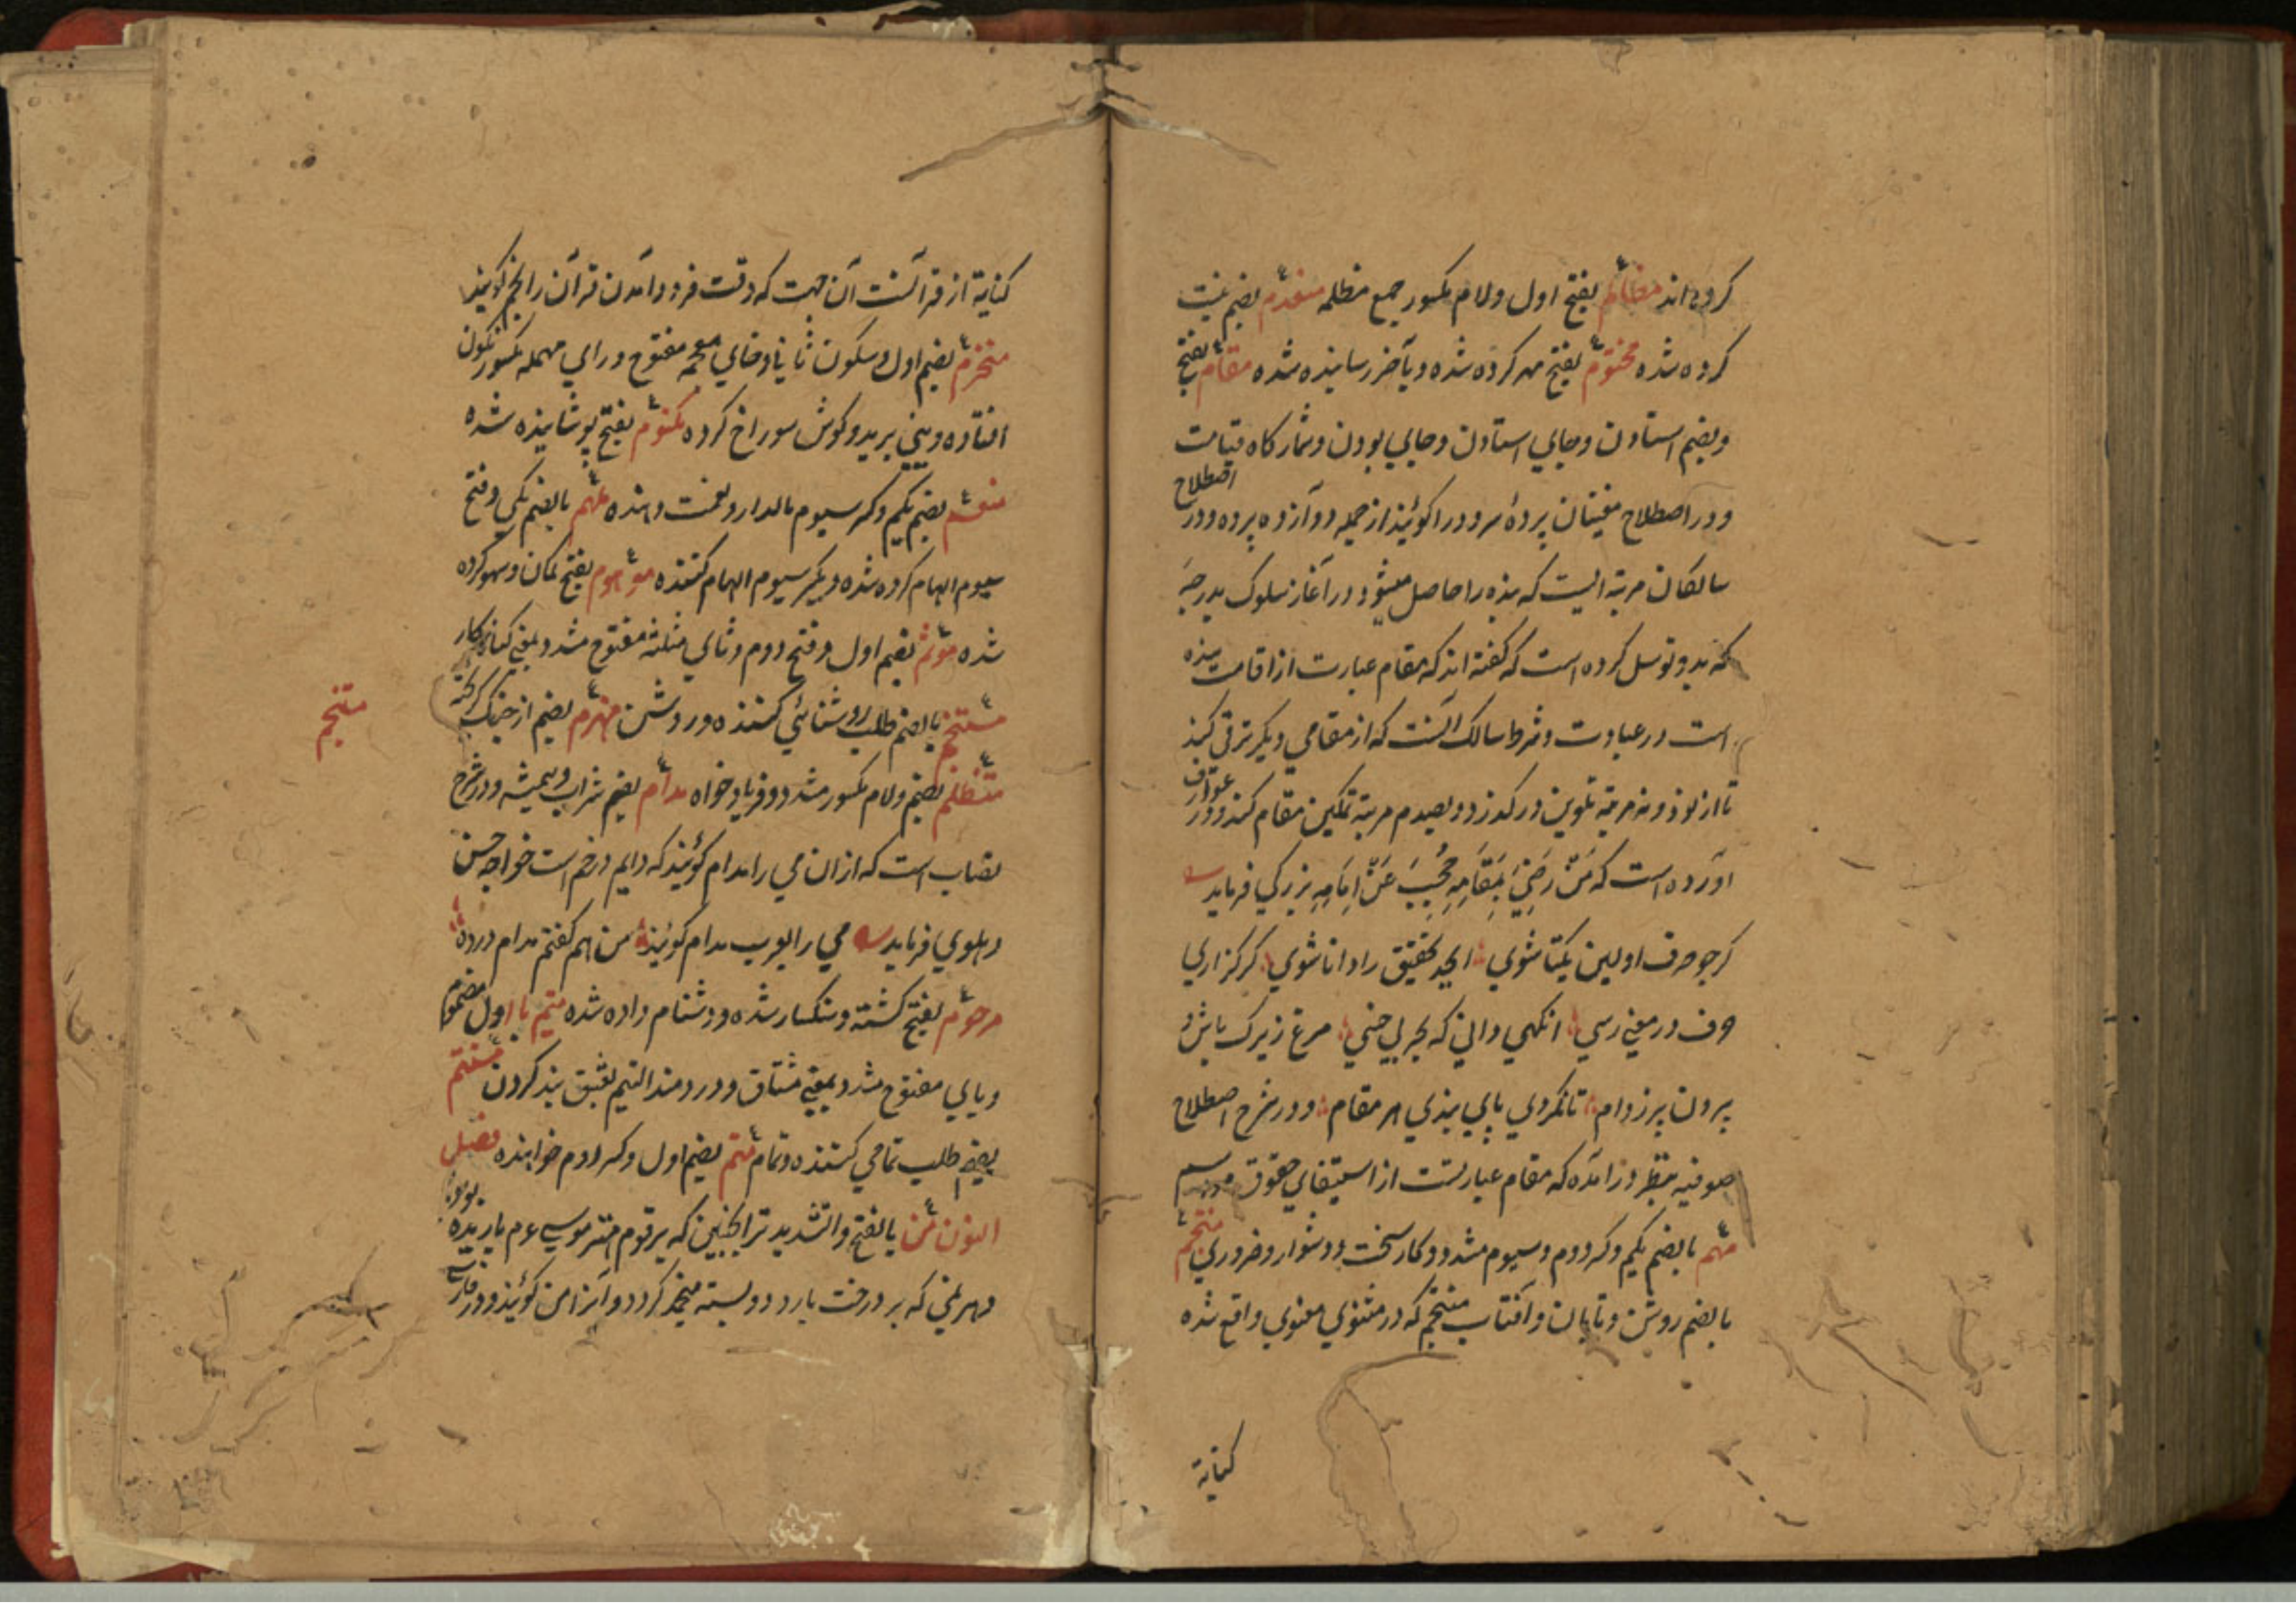 کرده اند مظالم بفتح اول ولام مکسور جمع مظلمه منعدم بضم نیست
کرده شده مختوم بفتح مهر کرده شده وبآخر رسانیده شده مقام بفتح
وبضم استادن وجای استادن وجای بودن وشمارکاه قیامت
ودر اصطلاح مغنیان پردهٔ سرود را کویند از جمله دوآزده پرده ودر اصطلاح
سالکان مرتبه ایست که بنده را حاصل میشود در آغاز سلوک بدرجهٔ
که بدو توسل کرده است که کفته اند که مقام عبارت از اقامت بنده
است در عبادت وشرط سالک آنست که از مقامی دیکر ترقی کند
تا از مرتبهٔ تلوین در کذرد وبصدم مرتبهٔ تمکین مقام کند ودر عوارف
آورده است که مَنْ رَضِیَ بِمَقَامِهِ حُجِبَ عَنْ اِمَامِهِ بزرکی فرماید
کرجو حرف اولین یکتا شوی ابجد تحقیق را دانا شوی کر کزاری
حرف در معنی رسی انکهی دانی که بحر بی خسی مرغ زیرک باش و
بیرون پر ز دام تا نکردی پای بندی هر مقام ودر شرح اصطلاح
صوفیه بنظر در آمده که مقام عبارتست از استیفای حقوق مراسم
مهم بالضم یکم وکسر دوم وسیوم مشدد وکار سخت ودشوار وضروری منتجم
بالضم روشن وتابان وآفتاب منتجم که در مثنوی معنوی واقع شده
کنایة
کنایة از قرآنست آن جهت که وقت فرود آمدن قرآن را نجم کویند
منخرم بضم اول وسکون ثانی وخای معجمه مفتوح ورای مهمله مکسور نکون
افتاده وبینی بریده وکوش سوراخ کرده مکتوم بفتح پوشانیده شده
منعم بضم یکم وکسر سیوم مالدار ونعمت دهنده ملهم بالضم یکم وفتح
سیوم الهام کرده شده وبکسر سیوم الهام کننده موهوم بفتح کمان وسهو کرده
شده مؤثم بضم اول وفتح دوم وثای مثلثه مفتوح مشدد بمعنی کناه کار
مستنجم بالضم طلب روشنائی کننده وروشن منهزم بضم از جنک کریخته
متنجم
متظلم بضم ولام مکسور مشدد وفریاد خواه مدام بضم شراب وهمیشه ودر شرح
نصاب است که از آن می را مدام کویند که دایم در خم است خواجه حسن
دهلوی فرماید می را بعرب مدام کویند من هم کفتم مدام درده
مرجوم بفتح کشته وسنکسار شده ودشنام داده شده متیم با اول مضموم
ویای مفتوح مشدد بمعنی مشتاق ودردمند التیم بعشق بند کردن مستتم
بضم طلب تمامی کننده وتمام متم بضم اول وکسر دوم خواننده فصل
النون من بالفتح والتشدید ترانکبین که برقوم مهتر موسی عم باریده بود
وهر نمی که بر درخت بارد وبسته منجمد کردد وآنرا من کویند ودر فارسی